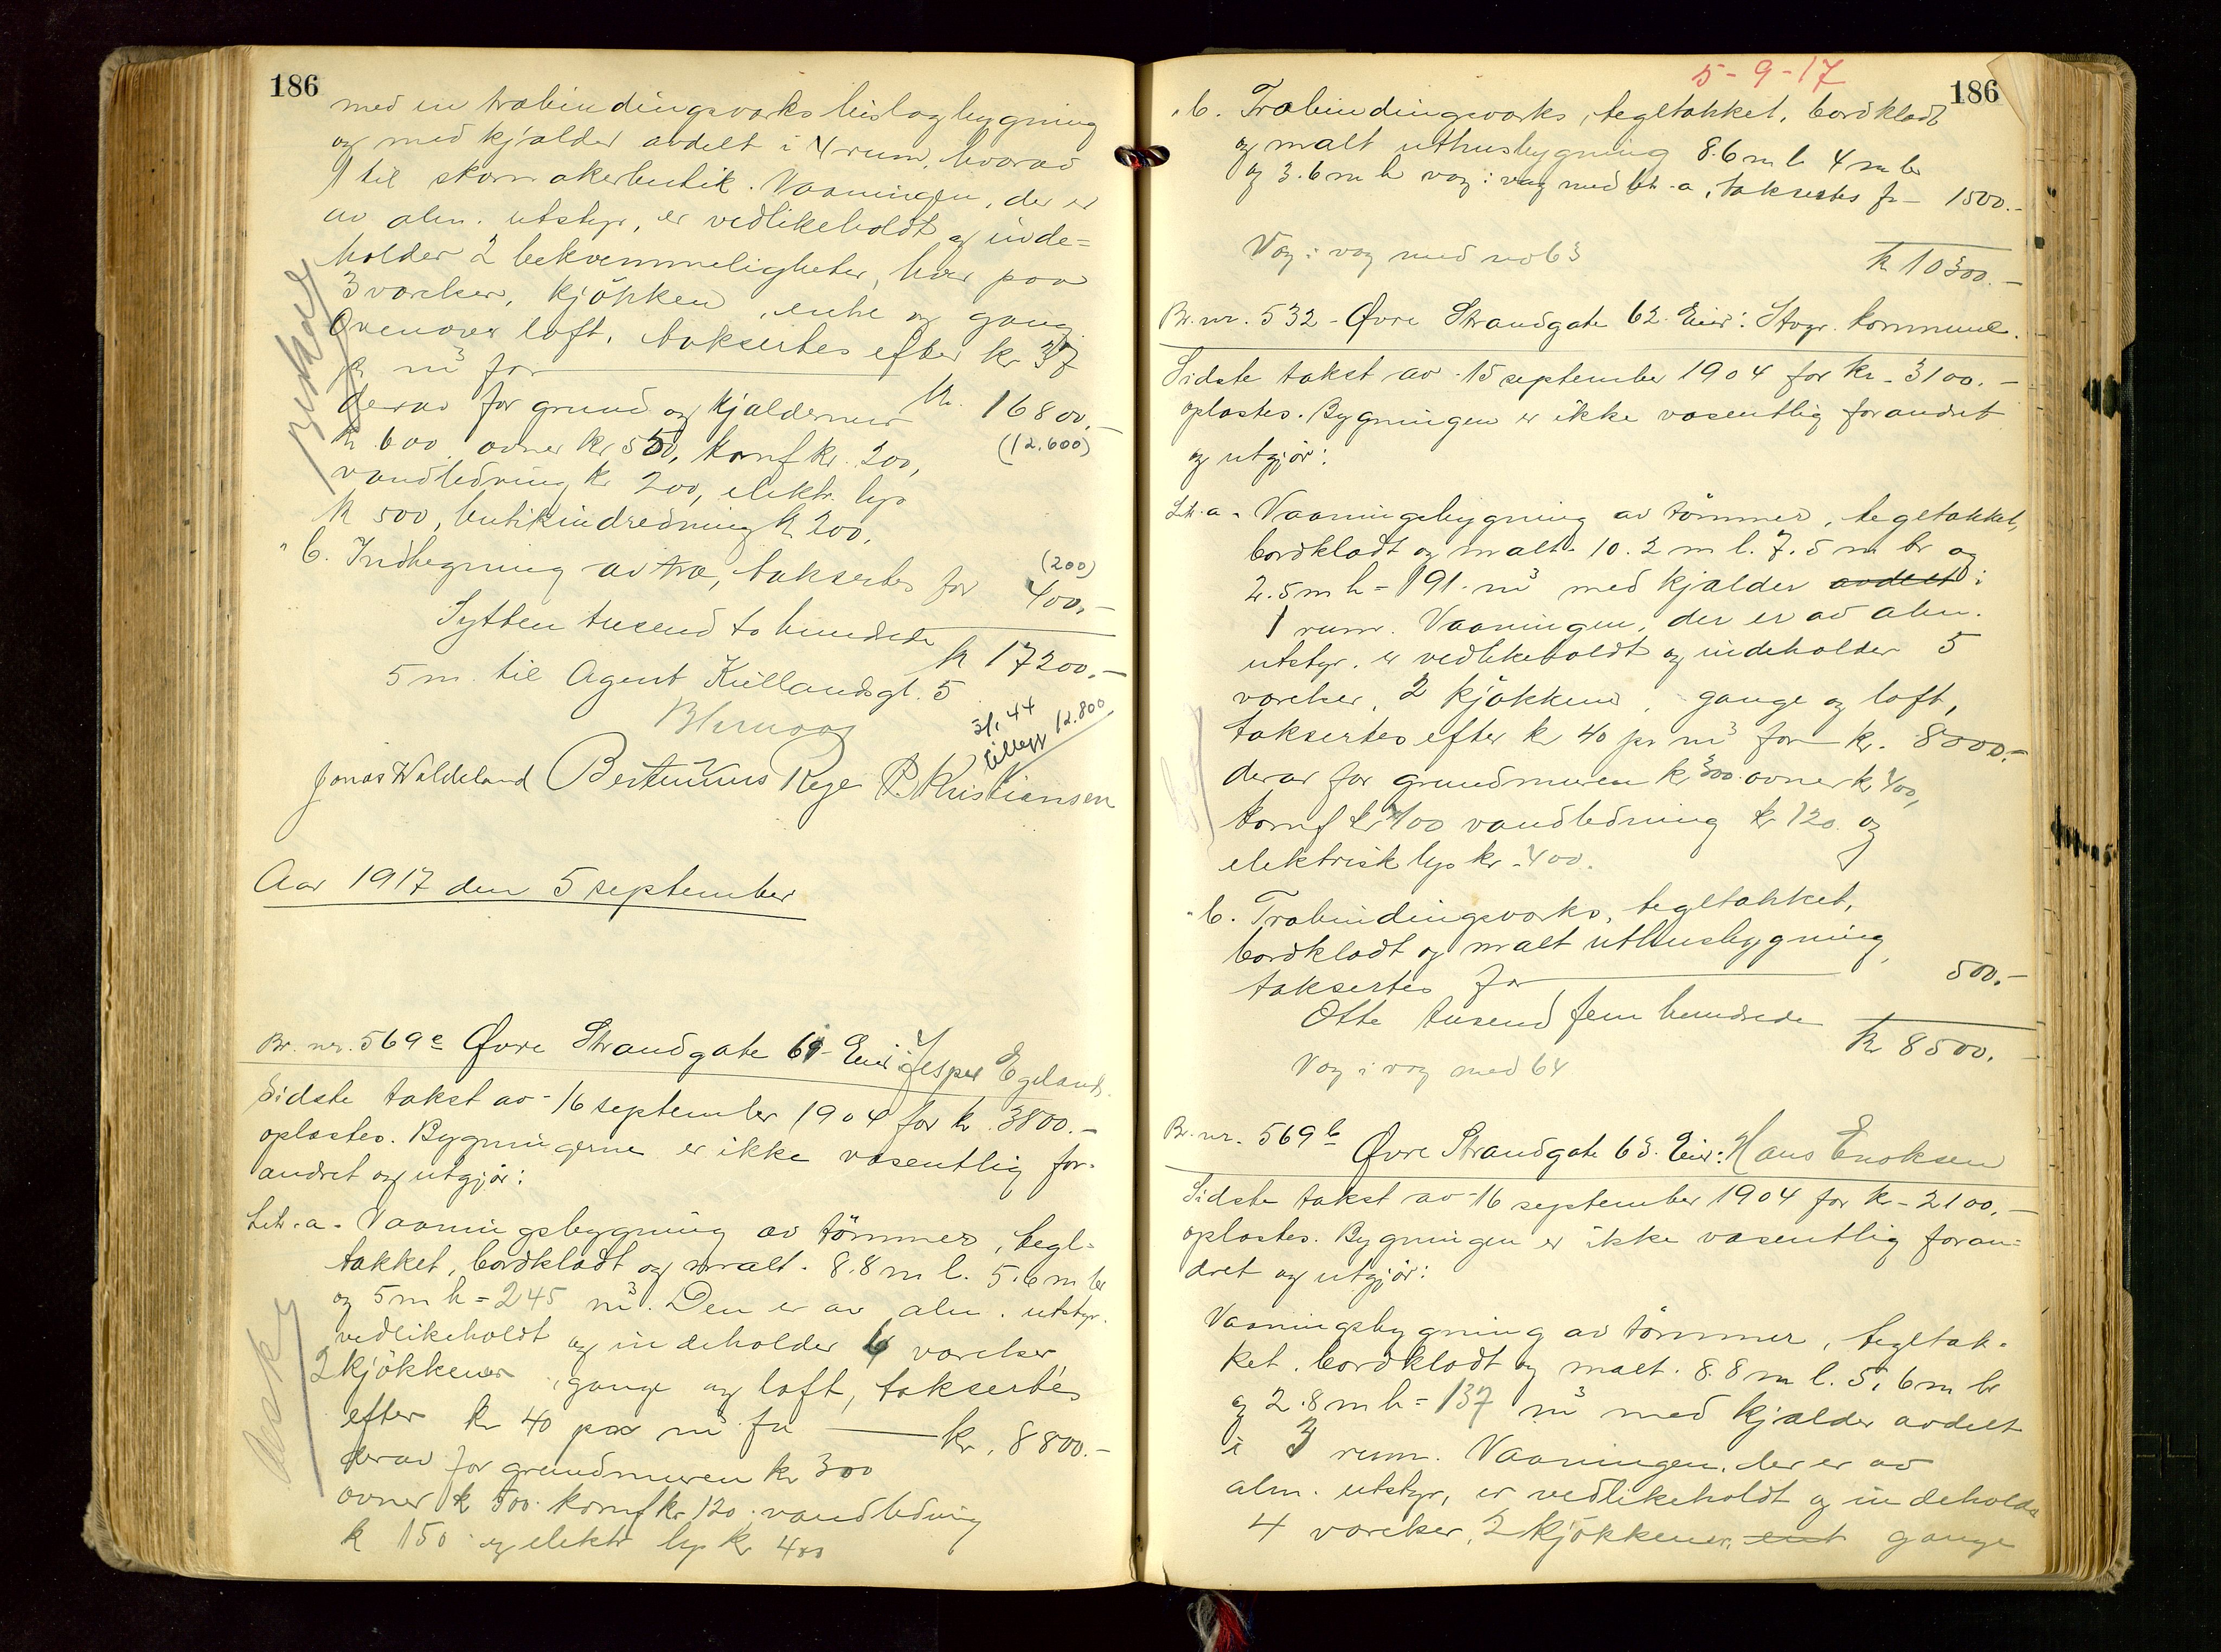 186
med en træbindingsverks bislagbygning
og med kjælder avdelt i 4 rum, hvorav
1 til skomakerbutik. Vaaningen, der er
av alm. utstyr, er vedlikeholdt og inde=
holder 2 bekvemmeligheter, hver paa
3 værelser, kjøkken, entre og gang.
Ovenover loft, taksertes efter kr 37
pr m³ for kr. 16800.-
derav for grund og kjældermur (12.600)
kr 600, ovner kr 550, komf kr. 200,
vandledning kr 200, elektr. lys
kr 500, butikindredning kr 200.
" b. Indhegning av træ, taksertes for 400.-
(200)
Sytten tusend to hundrede kr 17200.-
5 m. til Agent Kiellandsgt. 5
3/1 44
tillegg 12.800
Jonas Waldeland Bertinius Rege P. Kristiansen
Aar 1917 den 5 september
Br. nr. 569c Øvre Strandgate 61 - Eier: Jesper Egeland.
Sidste takst av - 16 september 1904 for kr. 3800.-
oplæstes. Bygningerne er ikke væsentlig for-
andret og utgjør:
Litr. a. Vaaningsbygning av tömmer, tegl-
tækket, bordklædt og malt. 8.8 m l. 5.6 m br
og 5 m h = 245 m³. Den er av alm. utstyr.
vedlikeholdt og indeholder 6 værelser,
2 kjökkener, gange og loft, taksertes
efter kr 40 pr m³ for kr. 8800.-
derav for grundmuren kr 300
ovner kr 500. komf kr. 120. vandledning
kr 150 og elektr lys kr 400
5-9-17
186
" b. Træbindingsverks, tegltækket, bordklædt
og malt uthusbygning 8.6 m l 4 m br
og 3.6 m h væg i væg med litr. a, taksertes for - 1500.-
kr 10300.-
Væg i væg med no 63
Br. nr. 532 - Øvre Strandgate 62. Eier: Stvgr. kommune.
Sidste takst av - 15 september 1904 for kr. 3100.-
oplæstes. Bygningen er ikke væsentlig forandret
og utgjör:
Litr. a. Vaaningsbygning av tömmer, tegltækket,
bordklædt og malt. 10.2 m l. 7.5 m br og
2.5 m h = 191 m³ med kjælder avdelt i
1 rum. Vaaningen, der er av alm.
utstyr. er vedlikeholdt og indeholder 5
værelser, 2 kjökkener, gange og loft,
taksertes efter kr 40 pr m³ for kr. 8000.-
derav for grundmuren kr 300. ovner kr 400,
komf kr 100 vandledning kr 120. og
elektrisk lys kr. 400.
" b. Træbindingsverks, tegltækket,
bordklædt og malt uthusbygning,
taksertes for 500.-
Otte tusend fem hundrede kr 8500.-
Væg i væg med 64
Br. nr. 569b Øvre Strandgate 63. Eier: Hans Enoksen
Sidste takst av - 16 september 1904 for kr - 2100.-
oplæstes. Bygningen er ikke væsentlig foran=
dret og utgjör:
Vaaningsbygning av tömmer, tegltæk-
ket, bordklædt og malt. 8.8 m l. 5.6 m br
og 2.8 m h = 137 m³ med kjælder avdelt
i 3 rum. Vaaningen, der er av
alm. utstyr, er vedlikeholdt og indeholder
4 værelser, 2 kjökkener, ent gange